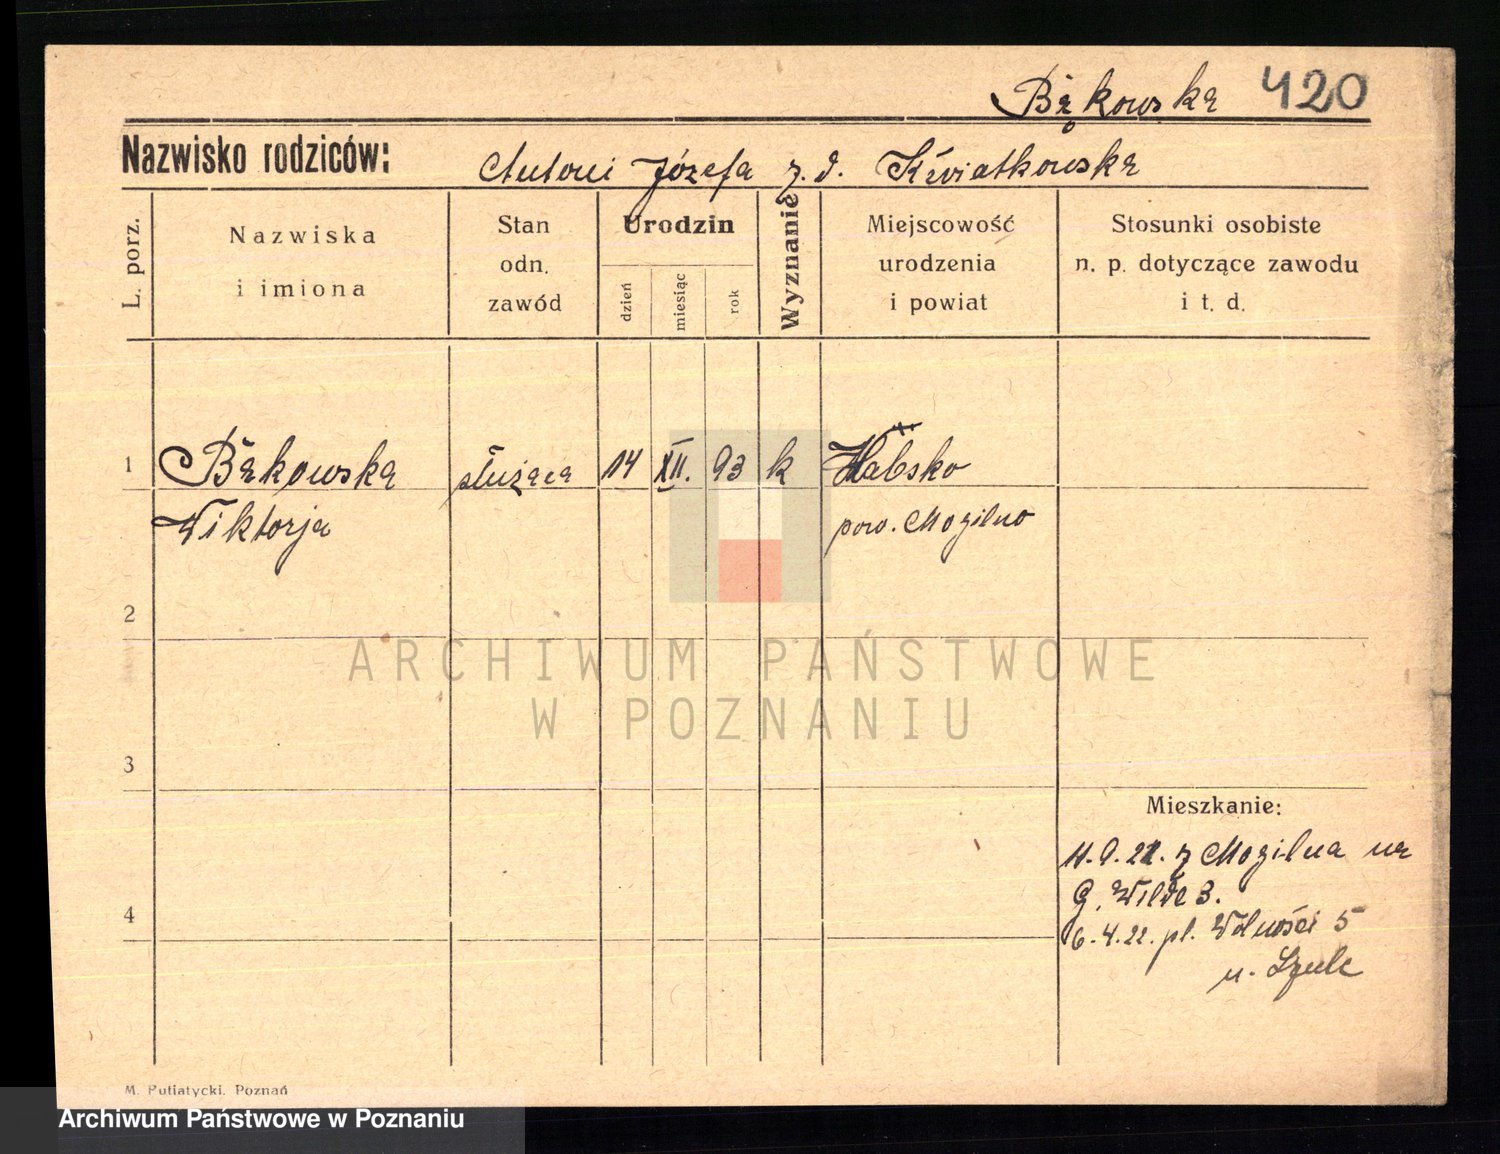 Bąkowska 420
Nazwisko rodziców: Antoni Józefa z. d. Kwiatkowska
L. porz.
Nazwiska
i imiona
Stan
odn.
zawód
Urodzin
dzień
miesiąc
rok
Wyznanie
Miejscowość
urodzenia
i powiat
Stosunki osobiste
n. p. dotyczące zawodu
i t. d.
1 Bąkowska służąca 14 XII. 93 k Hłabsko
Wiktorja pow. Mogilno
2
ARCHIWUM PAŃSTWOWE
W POZNANIU
3
Mieszkanie:
11.9.21. z Mogilna na
G. Wilde 3.
4
6.4.22. pl. Wolności 5
u. Szulc
M. Putiatycki. Poznań
Archiwum Państwowe w Poznaniu